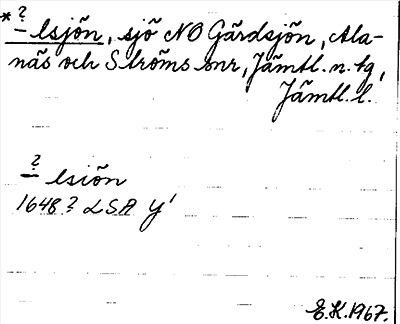 *?-lsjön, sjö NO Gärdsjön, Ala-
näs och Ströms snr, Jämtl. n. tg,
Jämtl. l.
?- lsiön
1648? LSA Y'
E.K. 1967.